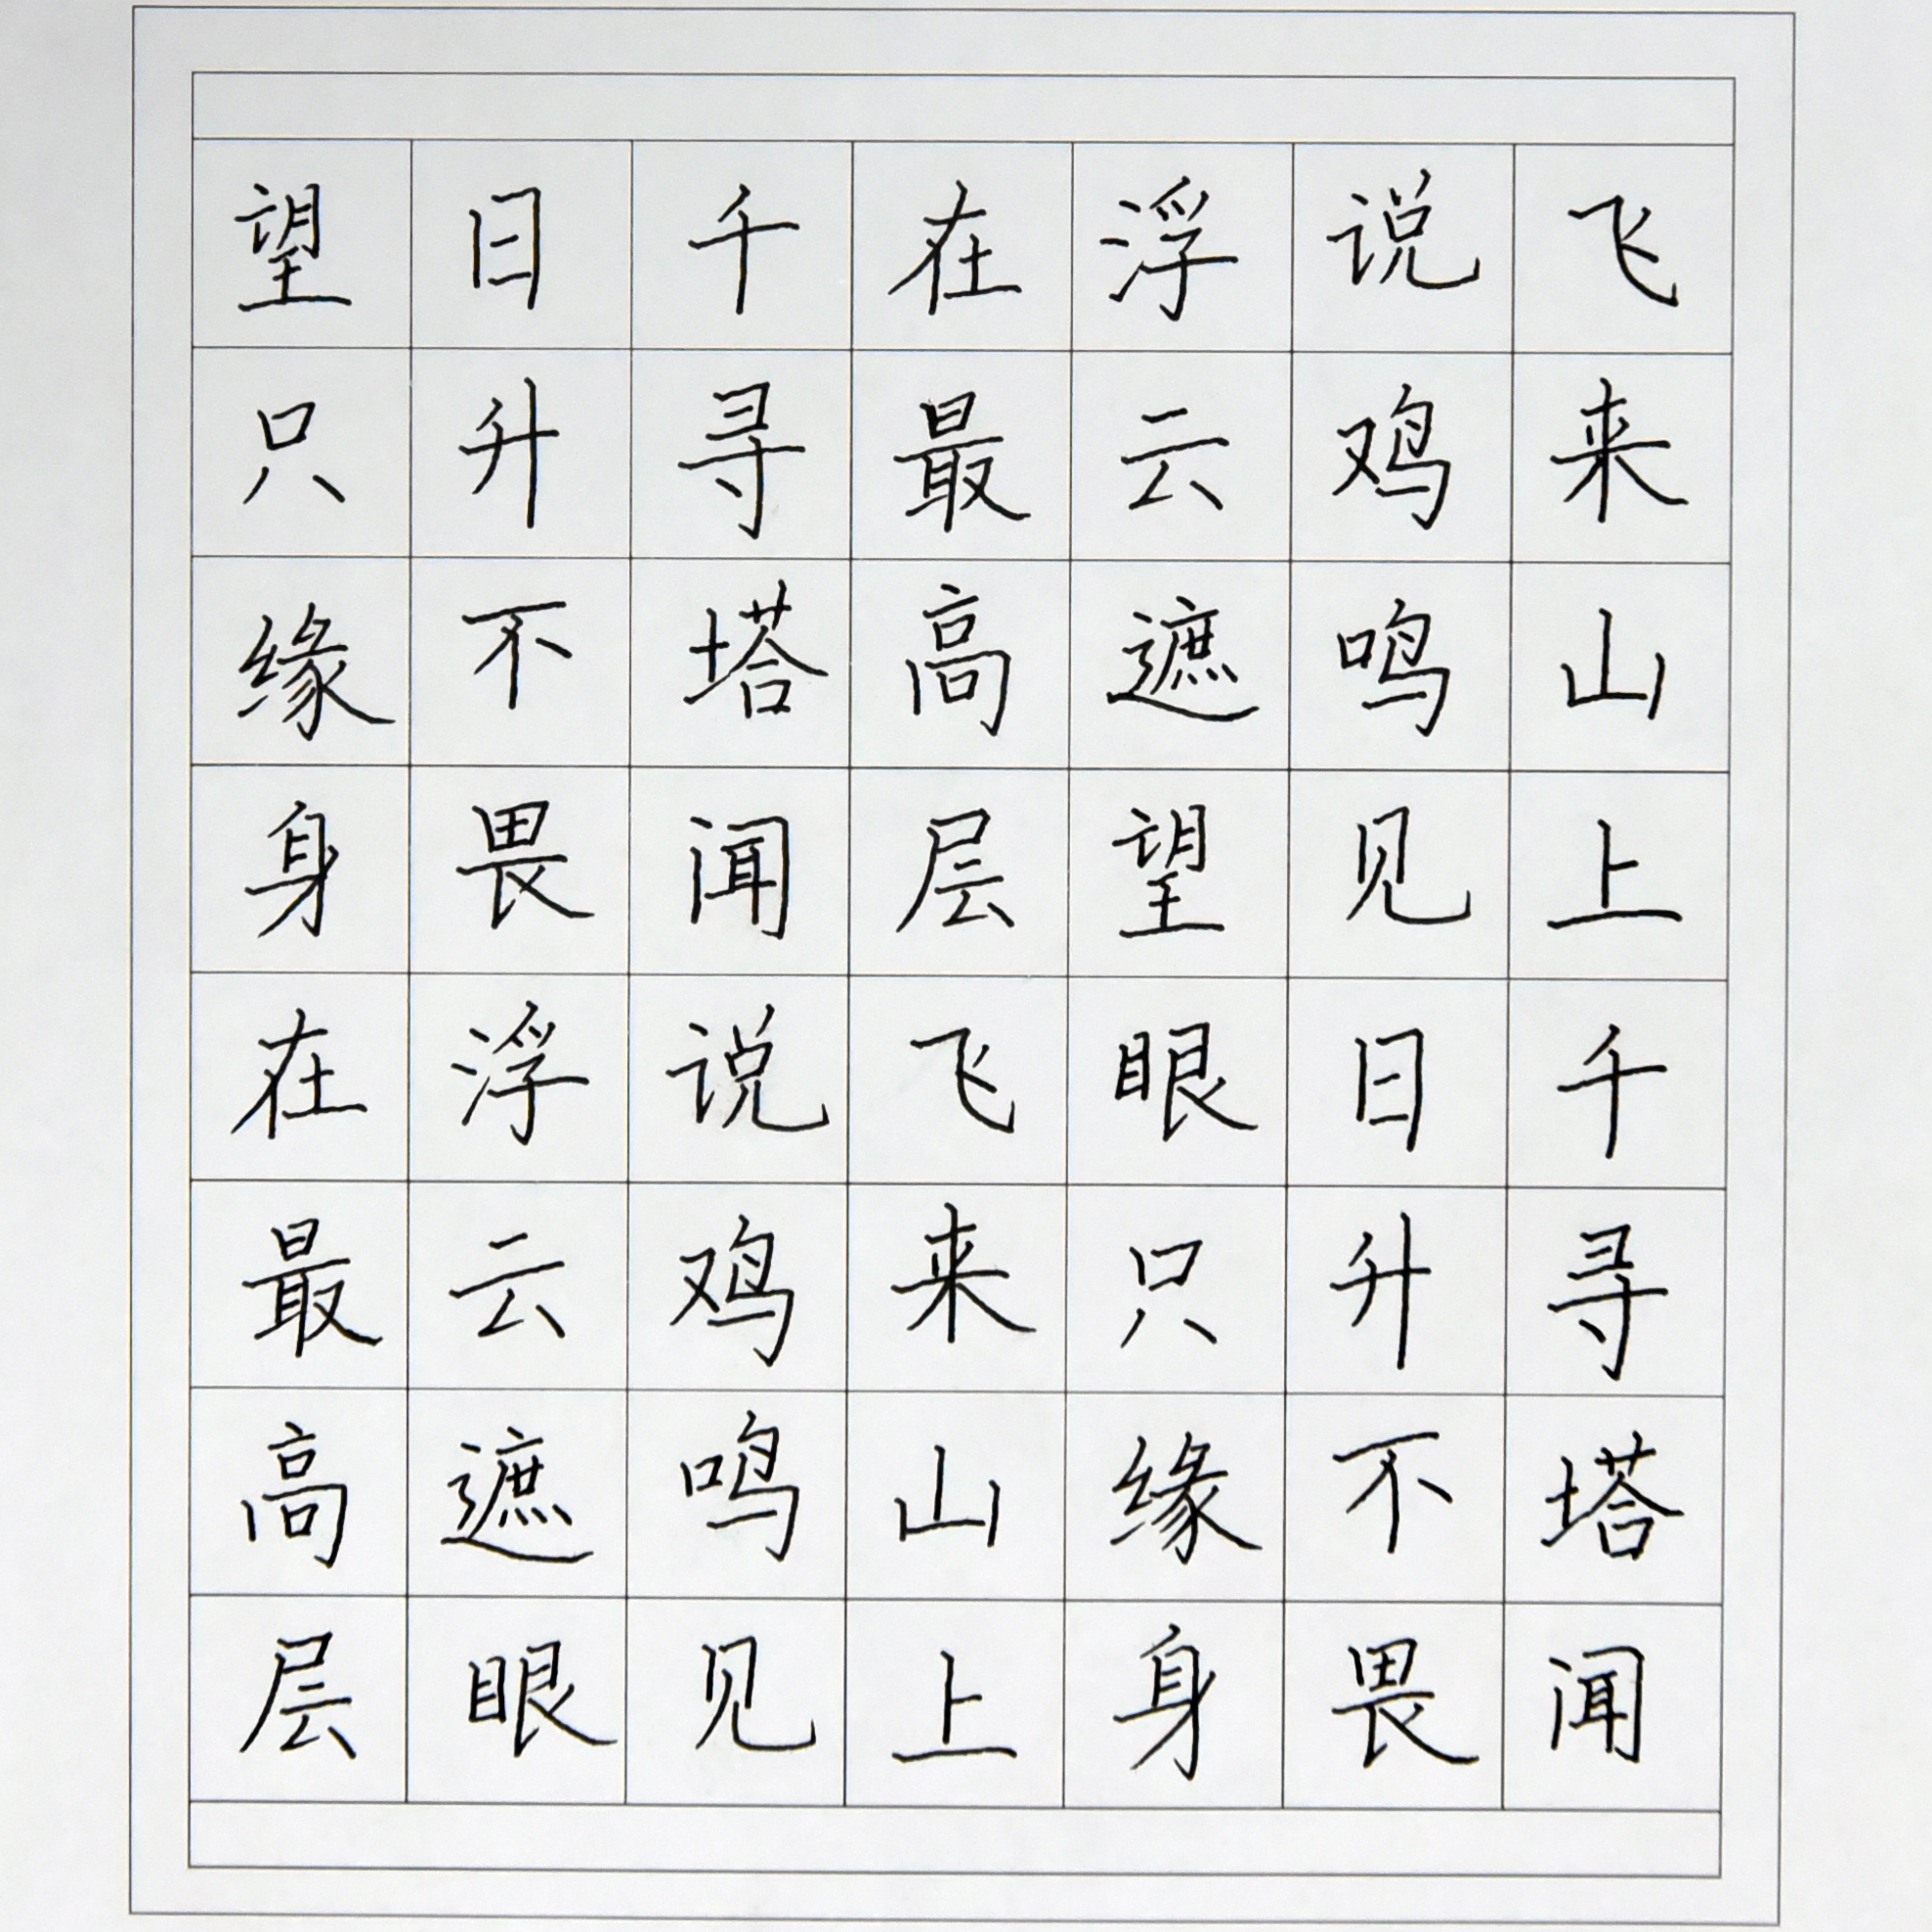 飞来山上千寻塔闻
说鸡鸣见日升不畏
浮云遮望眼只缘身
在最高层飞来山上
千寻塔闻说鸡鸣见
日升不畏浮云遮眼
望只缘身在最高层